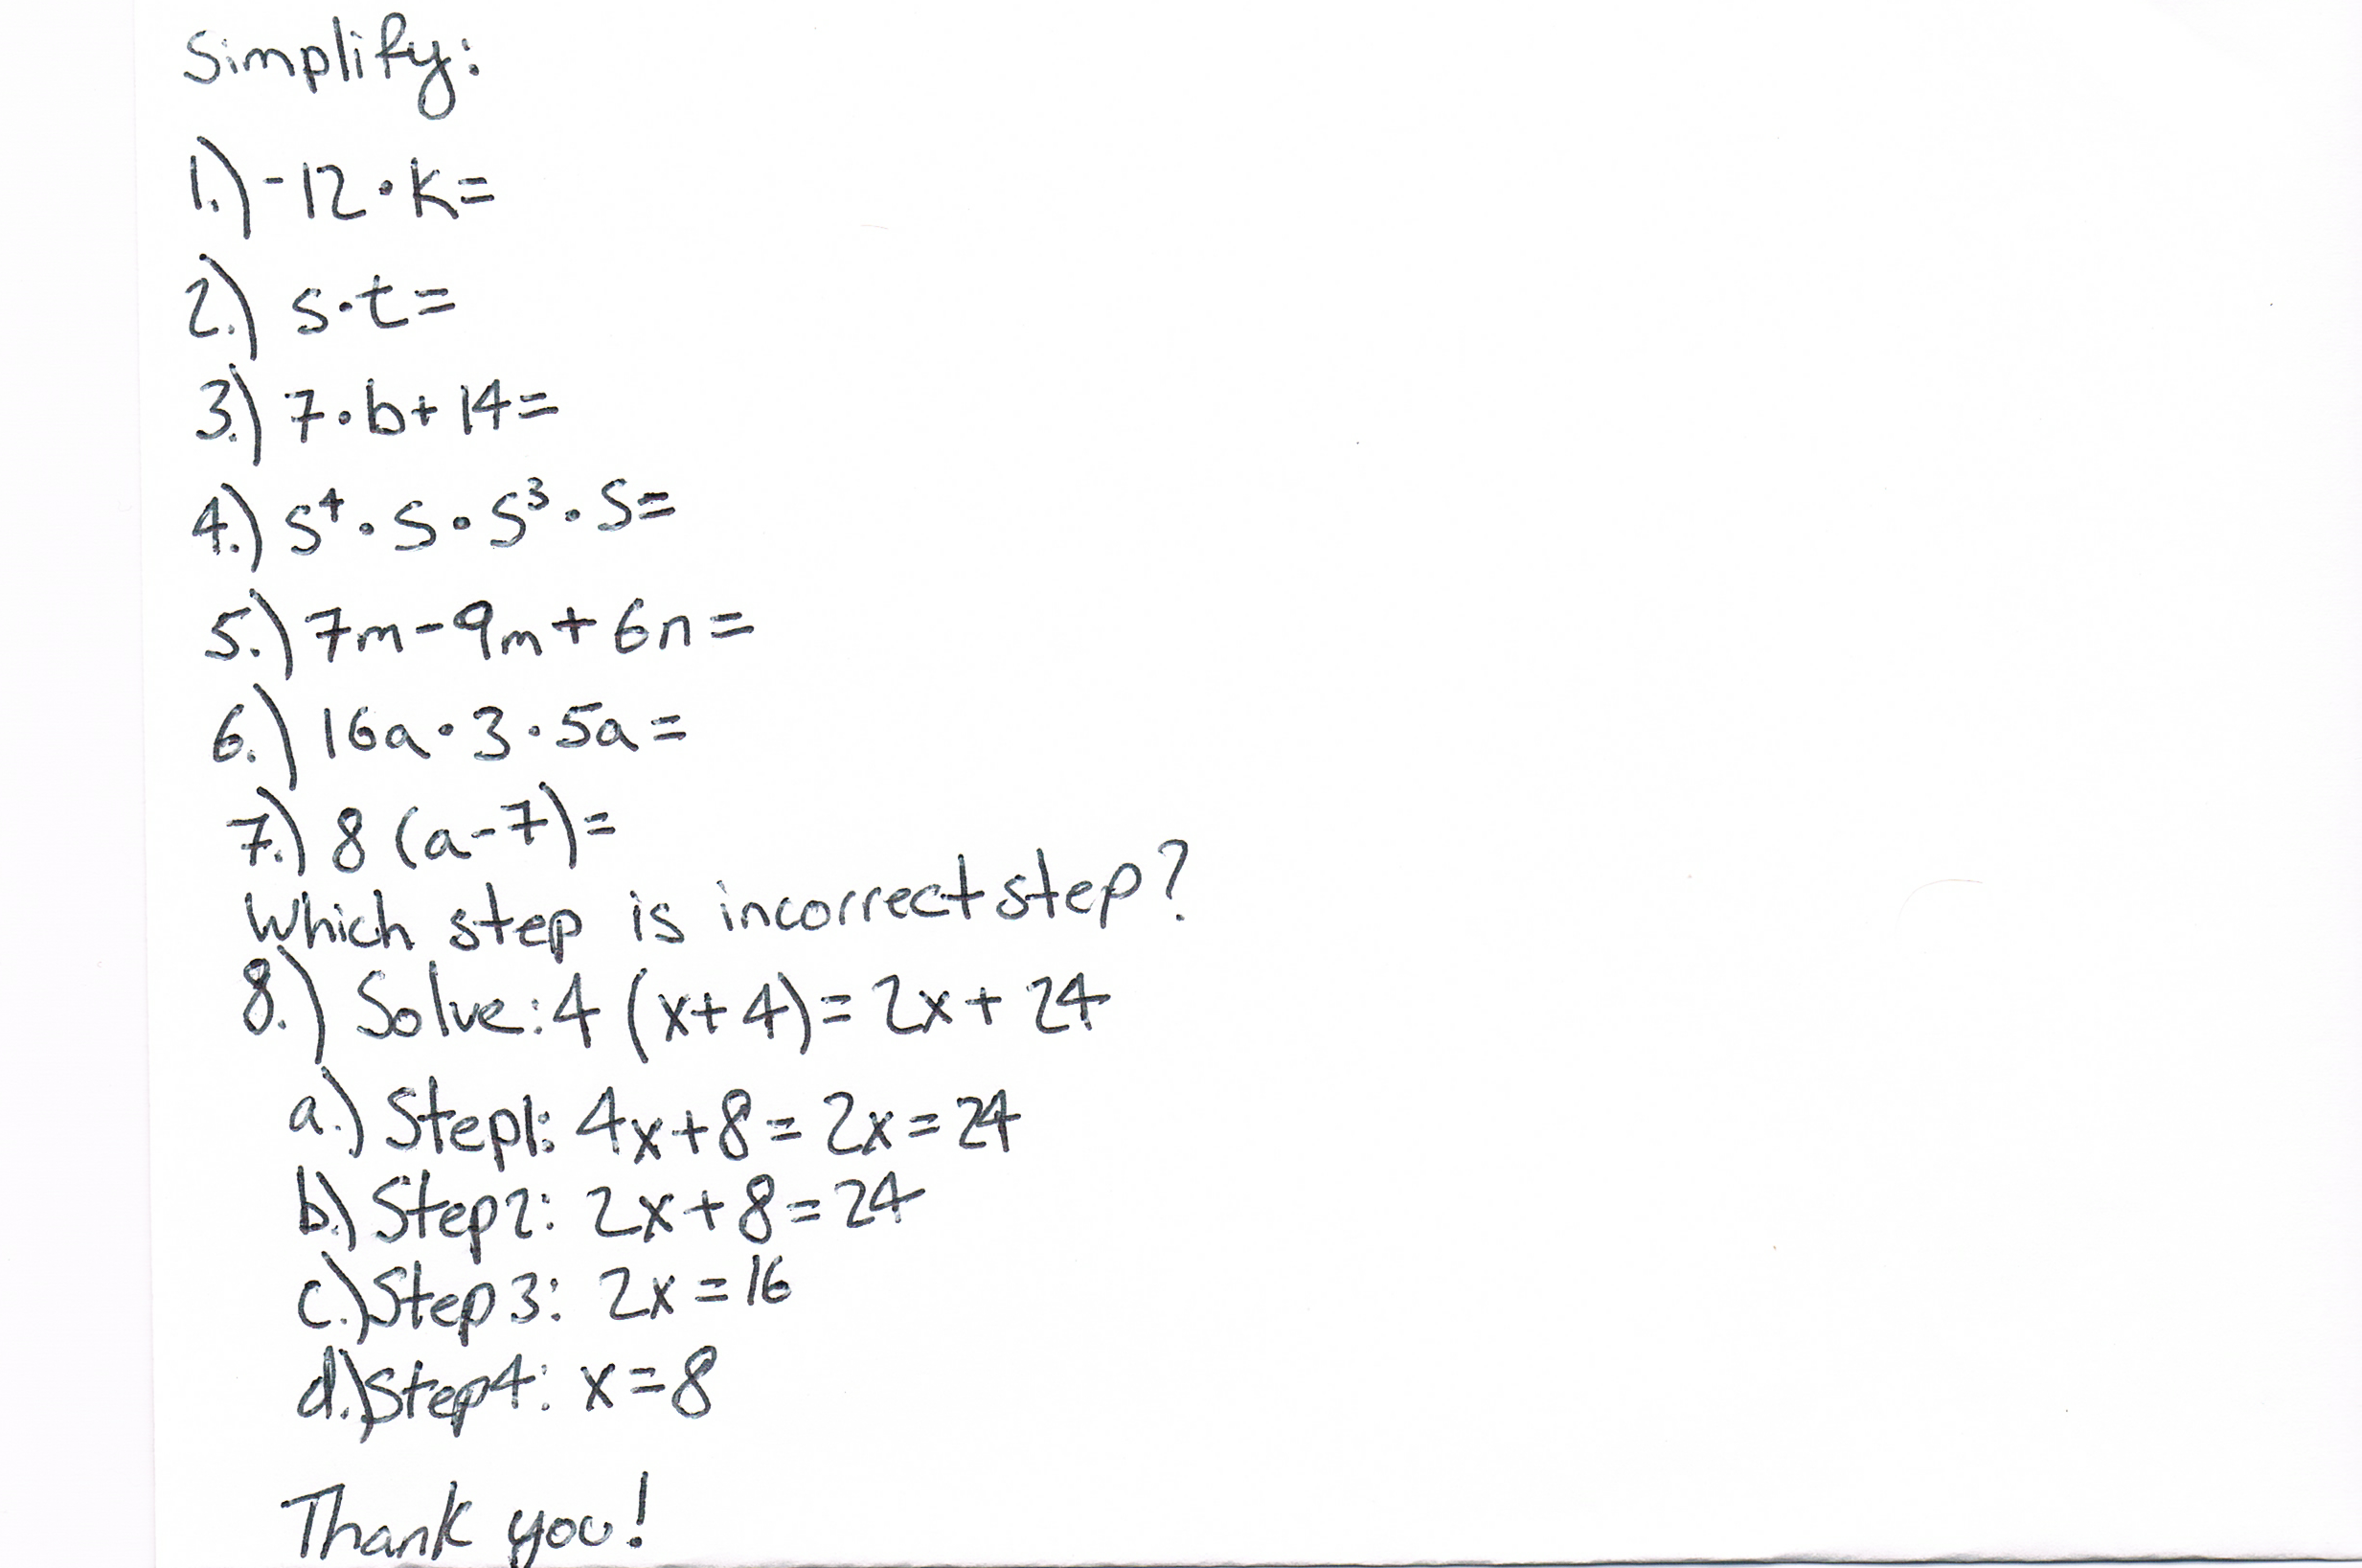 Simplify:
1.) -12 • k =
2.) s • t =
3.) 7 • b + 14 =
4.) s⁴ • s • s³ • s =
5.) 7m - 9m + 6n =
6.) 16a • 3 • 5a =
7.) 8 (a - 7) =
Which step is incorrect step?
8.) Solve: 4 (x + 4) = 2x + 24
a.) Step1: 4x + 8 = 2x = 24
b.) Step2: 2x + 8 = 24
c.) Step 3: 2x = 16
d.) Step4: x = 8
Thank you!